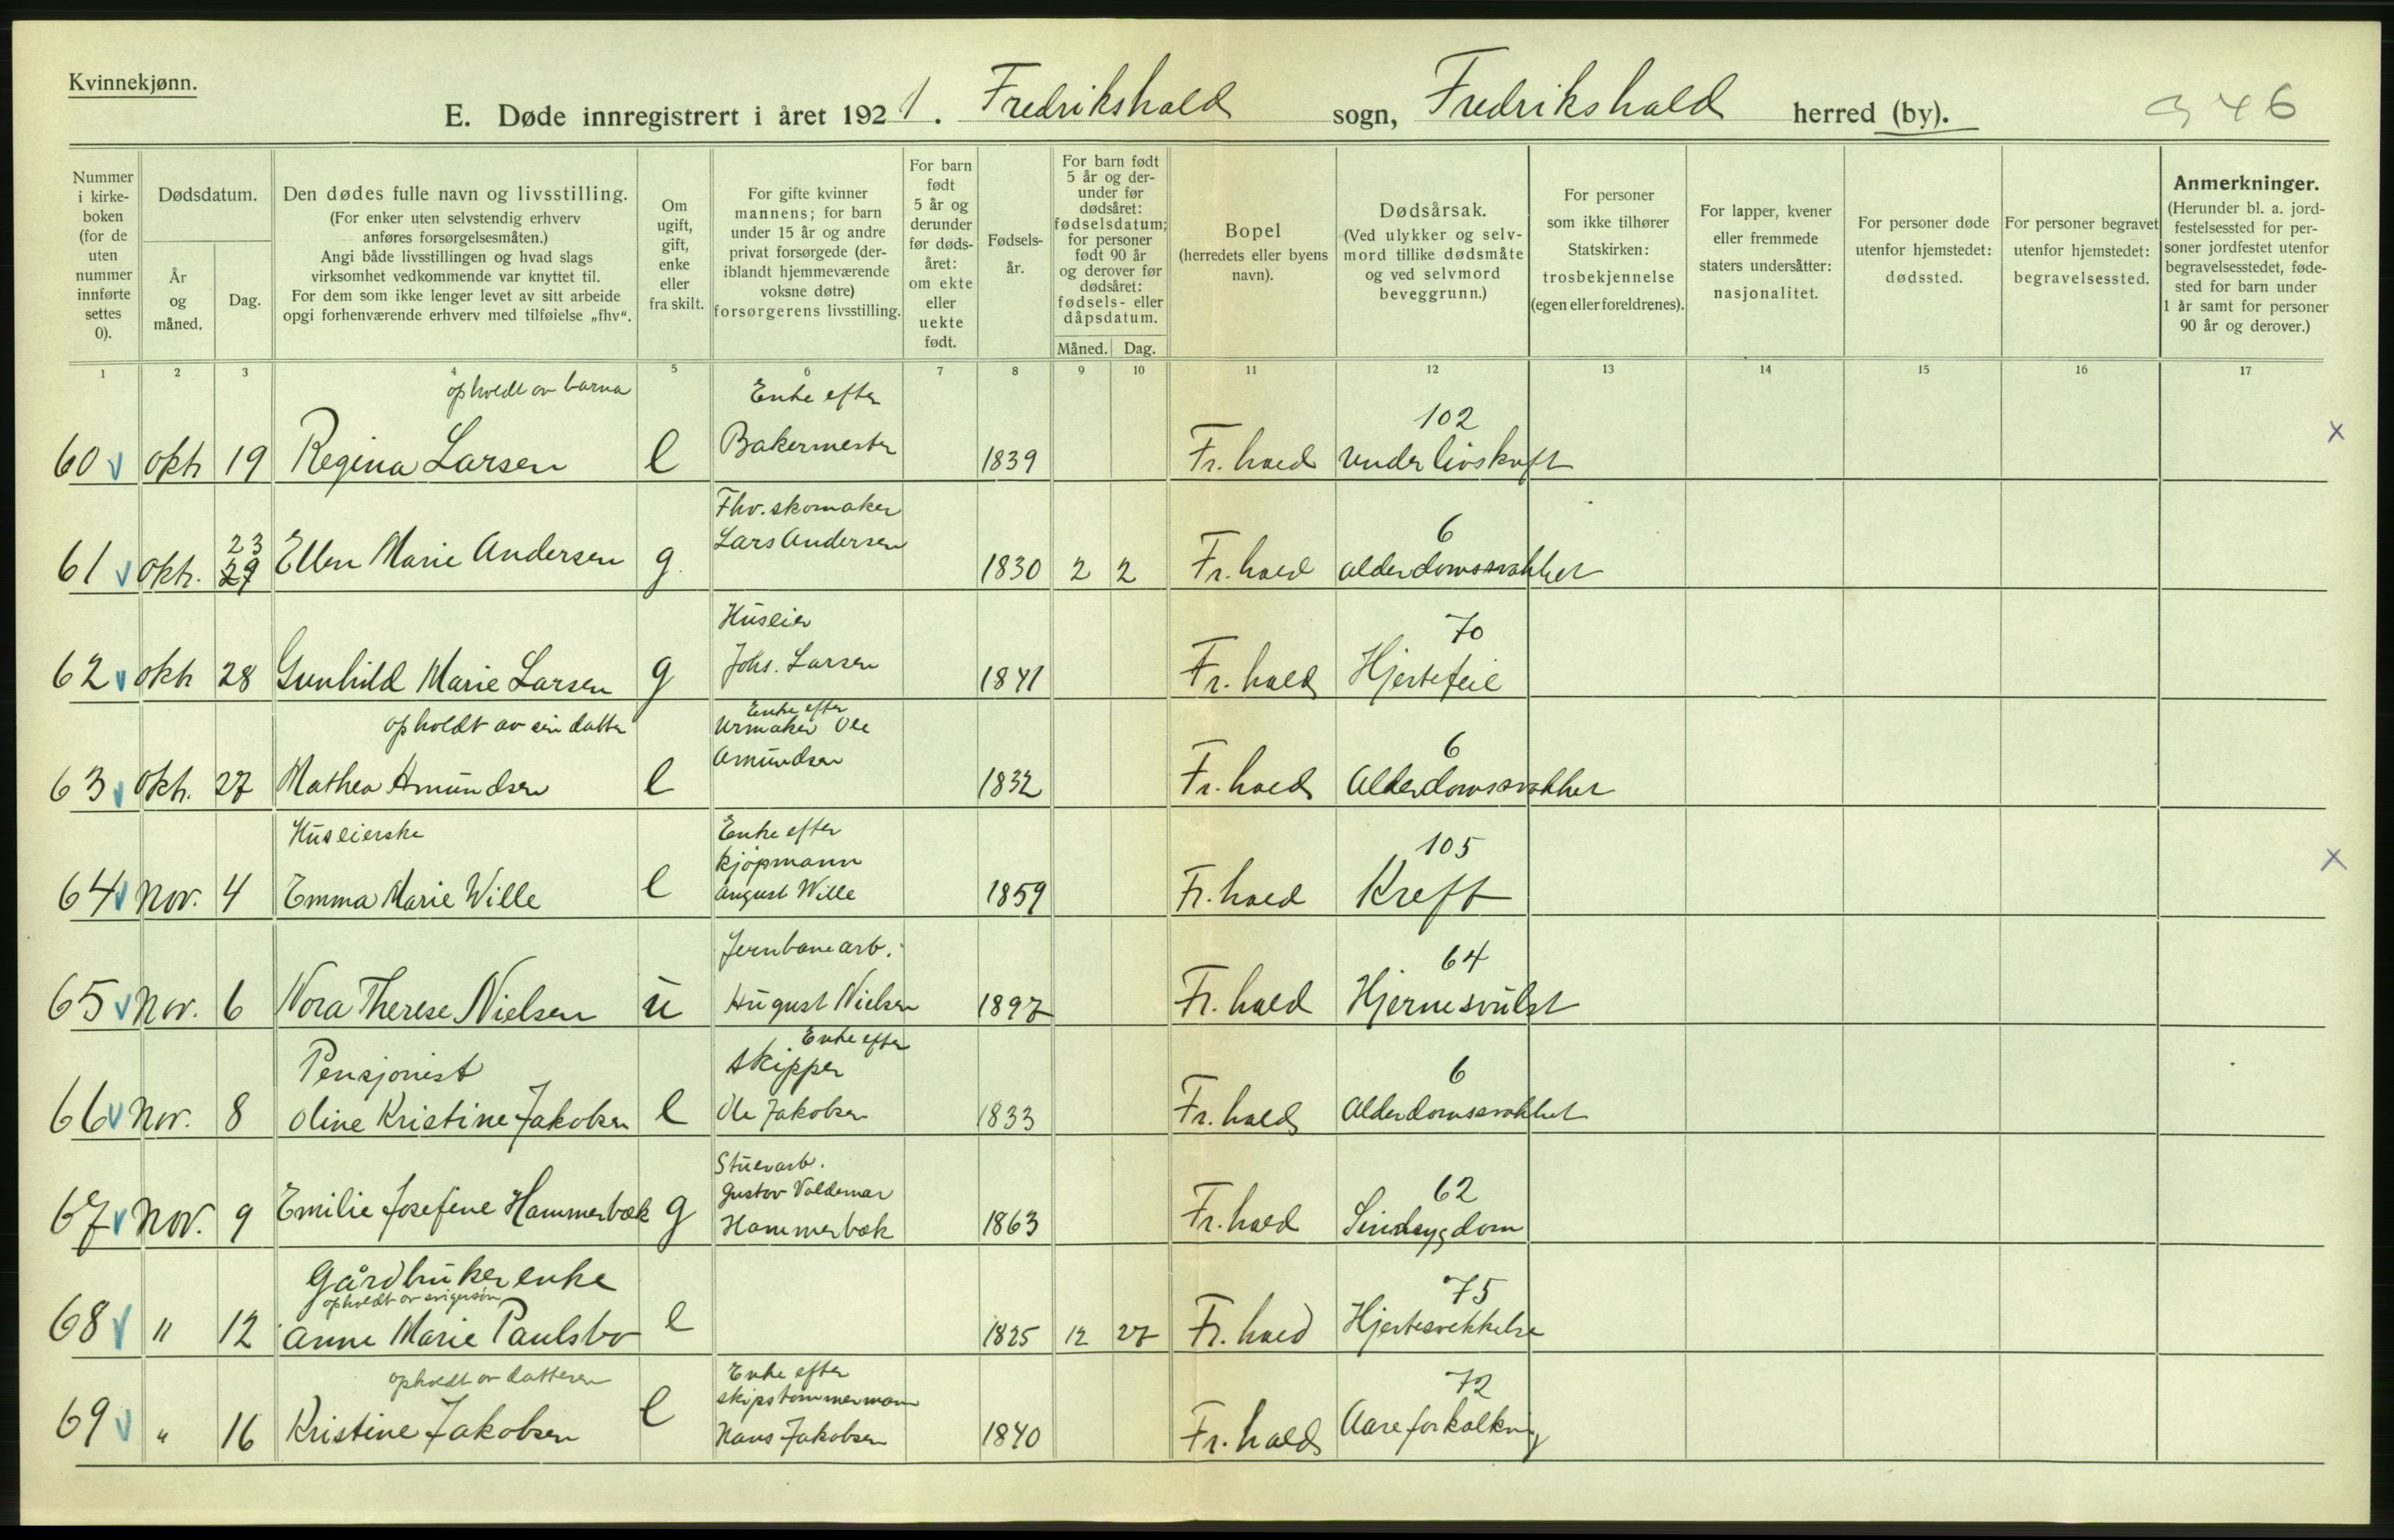 Kvinnekjønn.
E. Døde innregistrert i året 1921. Fredrikshald sogn, Fredrikshald herred (by). 346
Nummer i kirke-boken (for de uten nummer innførte settes 0).
Dødsdatum.
År og måned.
Dag.
Den dødes fulle navn og livsstilling.
(For enker uten selvstendig erhverv anføres forsørgelsesmåten.)
Angi både livsstillingen og hvad slags virksomhet vedkommende var knyttet til.
For dem som ikke lenger levet av sitt arbeide opgi forhenværende erhverv med tilføielse „fhv“.
Om ugift, gift, enke eller fra skilt.
For gifte kvinner mannens; for barn under 15 år og andre privat forsørgede (der-iblandt hjemmeværende voksne døtre) forsørgerens livsstilling.
For barn født 5 år og derunder før døds-året: om ekte eller uekte født.
Fødsels-år.
For barn født 5 år og der-under før dødsåret: fødselsdatum; for personer født 90 år og derover før dødsåret: fødsels- eller dåpsdatum.
Måned. Dag.
Bopel
(herredets eller byens navn).
Dødsårsak.
(Ved ulykker og selv-mord tillike dødsmåte og ved selvmord beveggrunn.)
For personer som ikke tilhører Statskirken: trosbekjennelse (egen eller foreldrenes).
For lapper, kvener eller fremmede staters undersåtter: nasjonalitet.
For personer døde utenfor hjemstedet: dødssted.
For personer begravet utenfor hjemstedet: begravelsessted.
Anmerkninger.
(Herunder bl. a. jord-festelsessted for per-soner jordfestet utenfor begravelsesstedet, føde-sted for barn under 1 år samt for personer 90 år og derover.)
1 2 3 4 5 6 7 8 9 10 11 12 13 14 15 16 17
opholdt av barna Enke efter 102
60 v okt 19 Regina Larsen e Bakermester 1839 Fr.hald Underlivskreft x
Fhv. skomaker
23 Lars Andersen 6
61 v okt. 29 Ellen Marie Andersen g. 1830 2 2 Fr.hald alderdomssvakhet
Huseier 70
62 v okt 28 Gunhild Marie Larsen g Johs. Larsen 1841 Fr.hald Hjertefeil
opholdt av sin datter Enke efter
Urmaker Ole
Amundsen 6
63 v okt. 27 Mathea Amundsen e 1832 Fr.hald Alderdomssvakhet
Huseierske Enke efter
kjøpmann 105
64 v nov. 4 Emma Marie Wille e August Wille 1859 Fr.hald Kreft x
Jernbanearb. 64
65 v nov. 6 Nora Therese Nielsen u August Nielsen 1897 Fr.hald Hjernesvulst
Enke efter
Pensjonist skipper 6
66 v nov. 8 Oline Kristine Jakobsen e Ole Jakobsen 1833 Fr.hald Alderdomssvakhet
Stuerarb.
Gustav Valdemar 62
67 v nov. 9 Emilie Josefine Hammerbæk g Hammerbæk 1863 Fr.hald Sindsygdom
Gårdbrukerenke
opholdt av svigersøn 75
68 v " 12 Anne Marie Paulsbo e 1825 12 27 Fr.hald Hjertesvekkelse
opholdt av datteren Enke efter
skipstømmermann 72
69 v " 16 Kristine Jakobsen e Hans Jakobsen 1840 Fr.hald Aareforkalkning